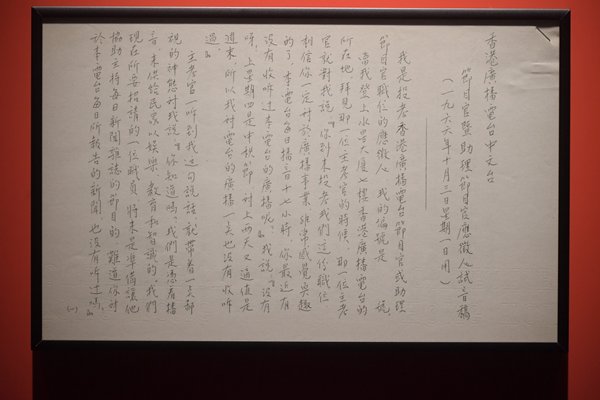 香港廣播電台中文台
節目官暨助理節目官應徵人試音稿
(一九六六年十月三日星期一日用)
我是投考香港廣播電台節目官或助理
節目官職位的應徵人,我的編號是 號,
當我登上水星大廈七樓香港廣播電台的
所在地,拜見那一位主考官的時候,那一位主考
官就對我說:「你到來投考我們這份職位,
相信你一定對於廣播事業非常感覺興趣
的了,本電台每日播音十七小時,你最近有
沒有收听过本電台的廣播呢?」我說:「沒有
呀,上星期四是中秋節,对上兩天又適值是
週末,所以我对電台的廣播一点也沒有收听
過。」
主考官一听到我这句說話,就帶着一点鄙
視的神態对我說:「你知道嗎?我們是憑着播
音,來供給民眾以娛樂、教育和智識的。我們
現在所要招請的一位職員,將來是準備讓他
協助主持每日新聞雜誌的節目的,難道你对
於本電台每日所報告的新聞,也沒有听过嗎?」
(一)